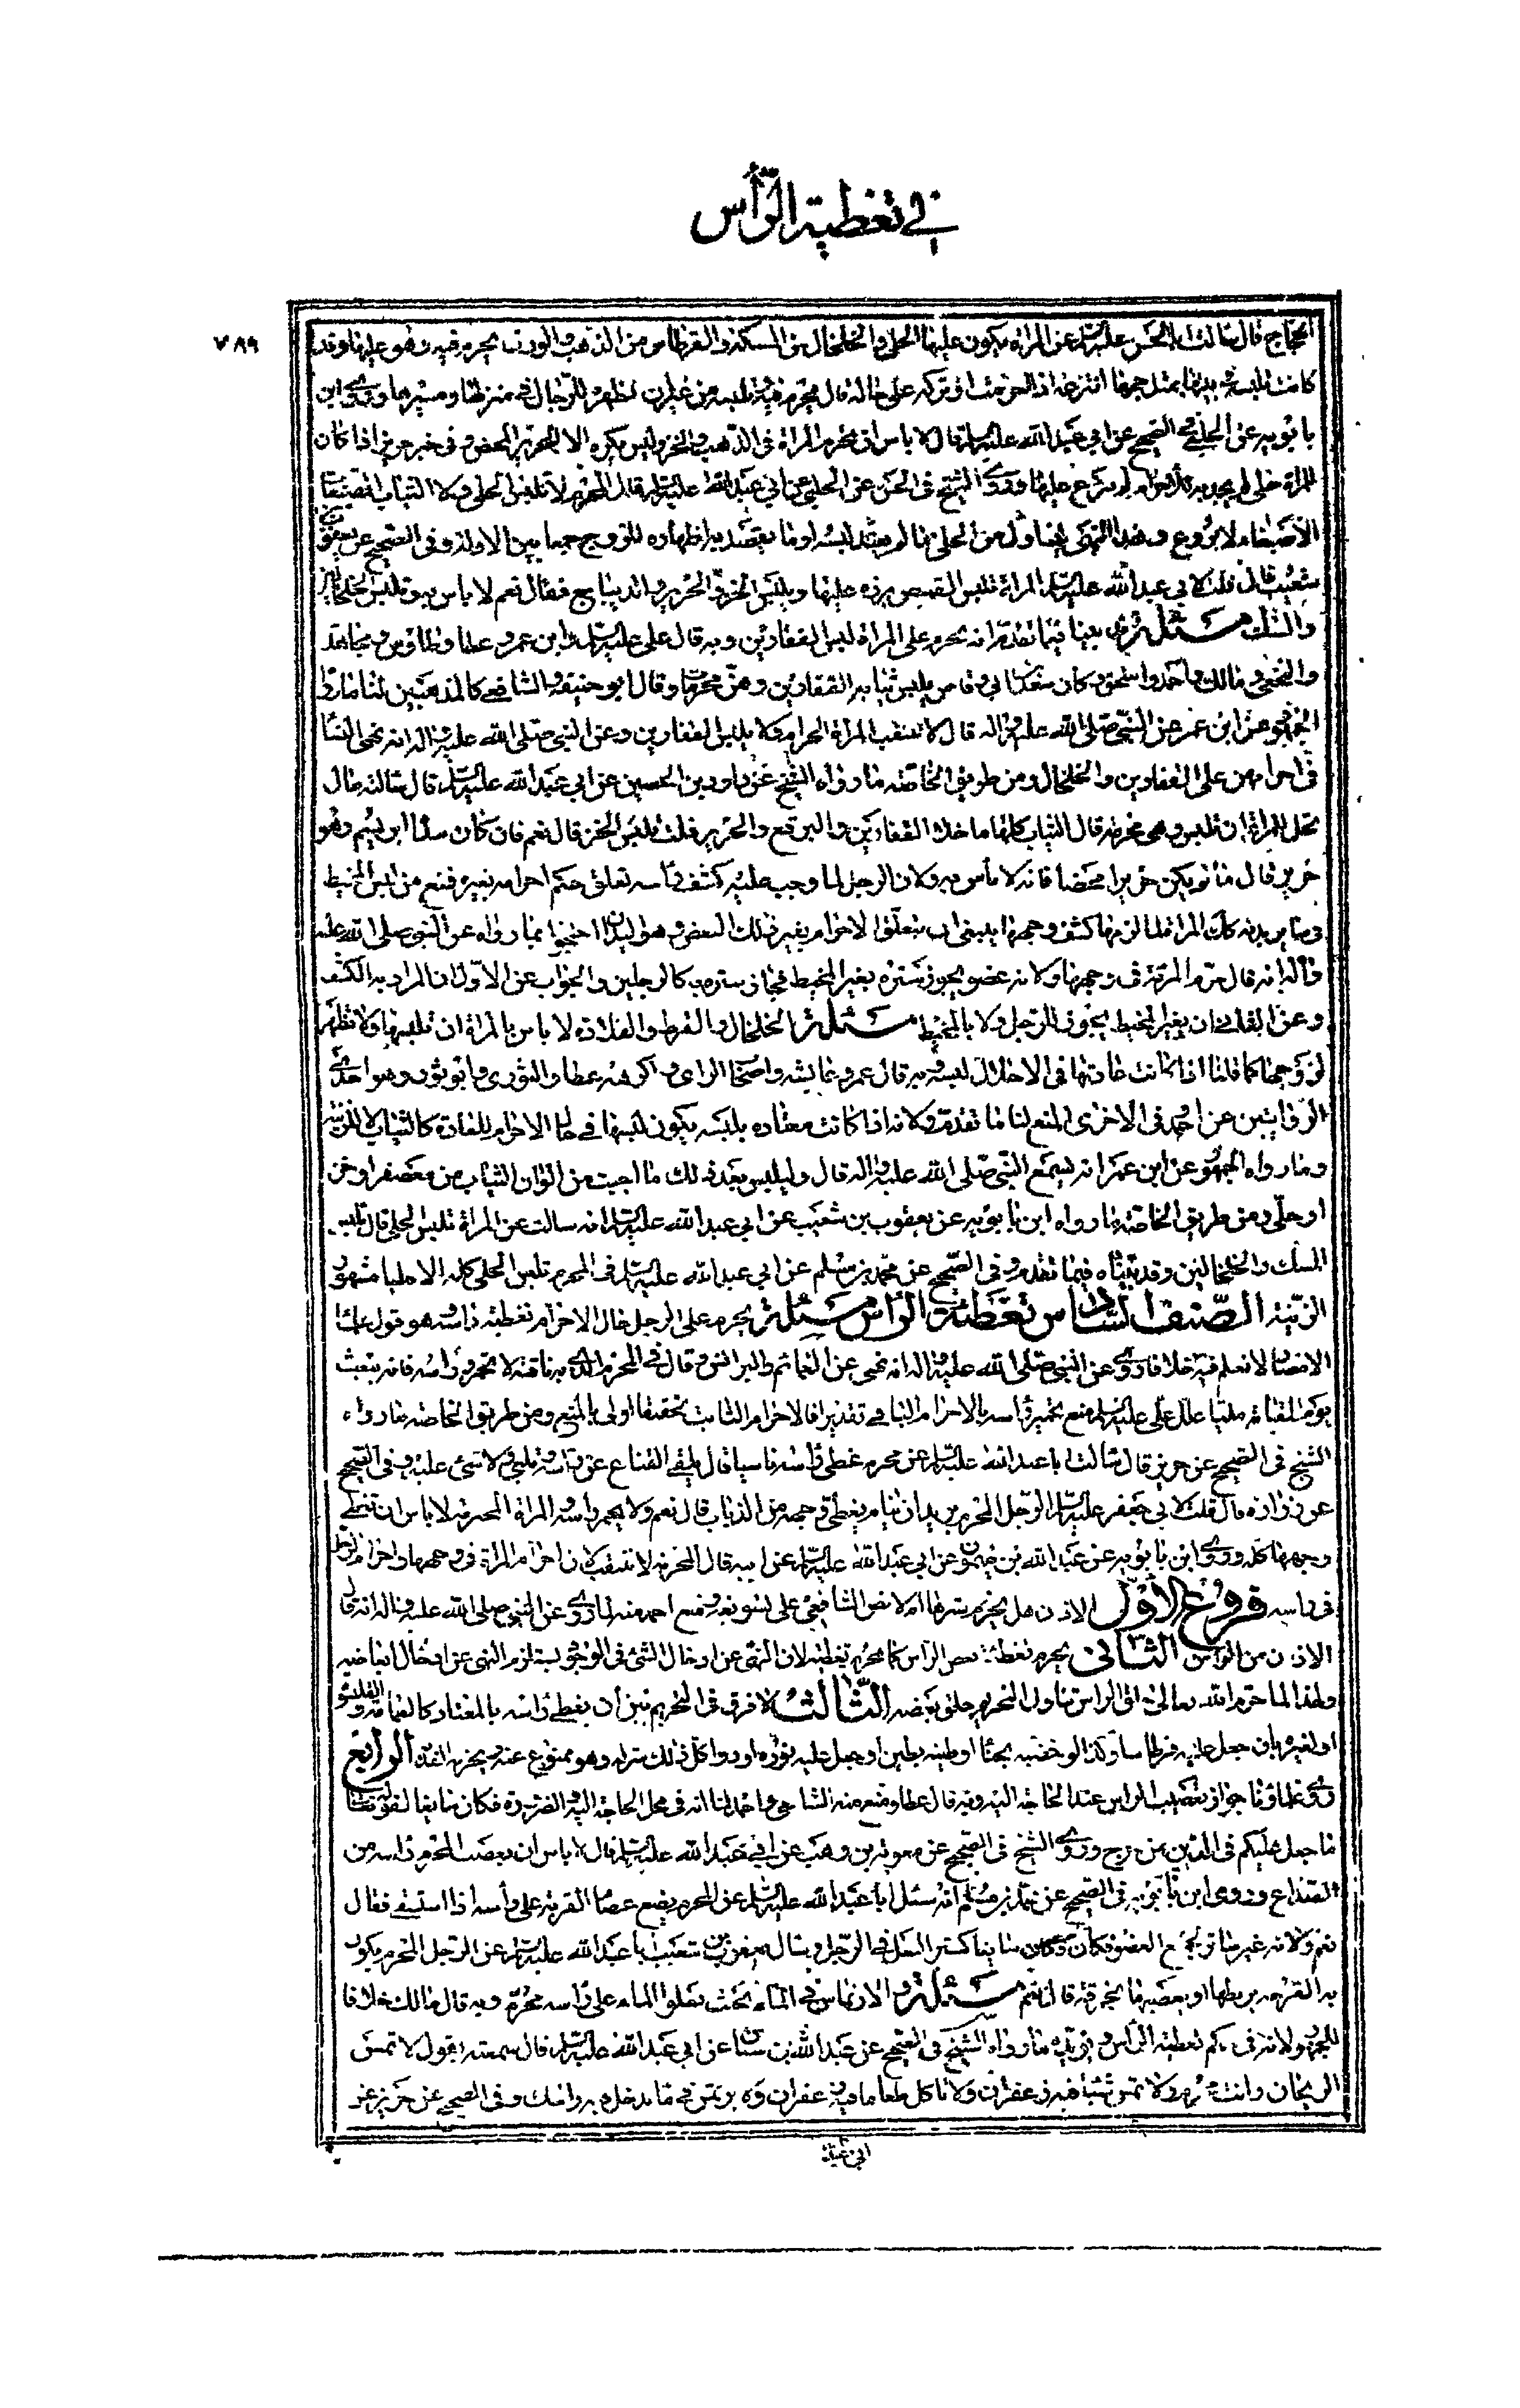 في تغطية الرأس
٧٨٩
الحجاج قال سالت ابا الحسن عليه السلام عن المراة يكون عليها الحلي والخلخال من المسكة والقرطان من الذهب والورق يحرم فيه وهو عليها وقد
كانت تلبسه في بيتها قبل حجها اتنزعه اذا احرمت او تتركه على حاله قال تحرم فيه وتلبسه من غير ان تظهره للرجال في مركبها ومسيرها وروى ابن
بابويه عن الحلبي في الصحيح عن ابي عبد الله عليه السلام قال لا باس ان تحرم المراة في الذهب والخز وليس يكره الا الحرير المحض وفي خبر حريز اذا كان
للمراة حلي لم تحدثه للاحرام لم ينزع عليها وقد روى الشيخ في الحسن عن الحلبي عن ابي عبد الله عليه السلام قال المحرمة لا تلبس الحلي ولا الثياب المصبغات
الا صبغا لا يردع وهذا النهي يتناول من الحلي ما لم يعتد لبسه او ما يقصد به اظهاره للزوج جمعا بين الادلة وفي الصحيح عن يعقوب بن
شعيب قال قلت لابي عبد الله عليه السلام المراة تلبس القميص تزره عليها وتلبس الخز والحرير والديباج فقال نعم لا باس به وتلبس الخلخالين
والمسك مسئلة قد بينا فيما تقدم انه يحرم على المراة لبس القفازين وبه قال علي عليه السلام وابن عمر وعطا وطاوس ومجاهد
والنخعي ومالك واحمد واسحق وكان سعد بن ابي وقاص يلبس بناته القفازين وهن محرمات وقال ابو حنيفة والشافعي كالمذهبين لنا ما رواه
الجمهور عن ابن عمر عن النبي صلى الله عليه واله قال لا تتنقب المراة الحرام ولا تلبس القفازين وعن النبي صلى الله عليه واله انه نهى النساء
في احرامهن على القفازين والخلخال ومن طريق الخاصة ما رواه الشيخ عن داود بن الحصين عن ابي عبد الله عليه السلام قال سالته ما
يحل للمراة ان تلبس وهي محرمة قال الثياب كلها ما خلا القفازين والبرقع والحرير قلت تلبس الخز قال نعم قلت فان سداه ابريسم وهو
حرير قال ما لم يكن حريرا محضا فانه لا باس به ولان الرجل لما وجب عليه كشف راسه تعلق حكم احرامه بغيره فمنع من لبس المخيط
في سائر بدنه كذلك المراة لما لزمها كشف وجهها ينبغي ان يتعلق الاحرام بغير ذلك البعض وهو اليدان احتجوا بما رواه عن النبي صلى الله عليه
واله انه قال احرام المراة في وجهها ولانه عضو يجوز ستره بغير المخيط فجاز ستره به كالرجلين والجواب عن الاول ان المراد به الكشف
وعن الثاني ان بغير المخيط يجوز للرجل ولا بالمخيط مسئلة الخلخال والقرط والقلادة لا باس بالمراة ان تلبسها ولا تظهر
لزوجها كما قلنا اذا كانت عادتها في الاحلال لبسه وبه قال عمر وعايشه واصحاب الراى وكرهه عطا والثوري وابو ثور وهو احدى
الروايتين عن احمد وفي الاخرى المنع لنا ما تقدم ولانه اذا كانت معتاده بلبسه يكون لبسها في حال الاحرام للعادة كالثياب لا للزينة
وما رواه الجمهور عن ابن عمر انه سمع النبي صلى الله عليه واله قال وليلبس بعد ذلك ما احبت من الوان الثياب من معصفر او خز
او حلي ومن طريق الخاصة ما رواه ابن بابويه عن يعقوب بن شعيب عن ابي عبد الله عليه السلام انه سالت عن المراة تلبس الحلي قال تلبس
المسك والخلخالين وقد بيناه فيما تقدم وفي الصحيح عن محمد بن مسلم عن ابي عبد الله عليه السلام في المحرمة تلبس الحلي كله الا حليا مشهورا
للزينة الصنف السادس تغطية الراس مسئلة يحرم على الرجل حال الاحرام تغطية راسه وهو قول علماء
الامصار لا نعلم فيه خلافا روى عن النبي صلى الله عليه واله انه نهى عن العمائم والبرانس وقال في المحرم الذي وقصت به ناقته لا تخمروا راسه فانه يبعث
يوم القيامة ملبيا علل على عليه السلام منع تخمير راسه بالاحرام الباقي تقديرا فالاحرام الثابت تحقيقا اولى بالمنع ومن طريق الخاصة ما رواه
الشيخ في الصحيح عن حريز قال سالت ابا عبد الله عليه السلام عن محرم غطى راسه ناسيا قال يلقي القناع عن راسه ويلبي ولا شئ عليه وفي الصحيح
عن زرارة قال قلت لابي جعفر عليه السلام الرجل المحرم يريد ان ينام يغطي وجهه من الذباب قال نعم ولا يخمر راسه والمراة المحرمة لا باس ان تغطي
وجهها كله وروى ابن بابويه عن عبد الله بن ميمون عن ابي عبد الله عليه السلام عن ابيه قال المحرمة لا تتنقب لان احرام المراة في وجهها واحرام الرجل
في راسه فروع الاول الاذنان هل يحرم سترهما ام لا نص الشافعي على تسويغه ومنع احمد منه لما روى عن النبي صلى الله عليه واله انه قال
الاذنان من الراس الثاني يحرم تغطية بعض الراس كما تحرم تغطيته لان النهي عن ادخال الشئ في الوجود يستلزم النهي عن ادخال ابعاضه
ولهذا لما حرم الله تعالى حلق الراس تناول التحريم حلق بعضه الثالث لا فرق في التحريم بين أن يغطي راسه بالمعتاد كالعمامة والقلنسوة
او لغيره بان جعل عليه قرطاسا وكذا لو خضبه بحناء او طينه بطين او جعل عليه نورة او دواء كل ذلك ستر له وهو ممنوع عنه ويحرم الفدية الرابع
روى علماؤنا جواز تعصيب الراس عند الحاجة اليه وبه قال عطا ومنع منه الشافعي واحمد لنا انه في محل الحاجة اليه والضرورة فكان سايغا لقوله تعالى
ما جعل عليكم في الدين من حرج وروى الشيخ في الصحيح عن معوية بن وهب عن ابي عبد الله عليه السلام قال لا باس ان يعصب المحرم راسه من
الصداع وروى ابن بابويه في الصحيح عن محمد بن مسلم انه سئل ابا عبد الله عليه السلام عن المحرم يضع عصام القربة على رأسه اذا استسقى فقال
نعم ولانه غير ساتر لجميع العضو فكان سايغا كستر النعل في الرجل وسال يعقوب بن شعيب ابا عبد الله عليه السلام عن الرجل المحرم يكون
به القرحة يربطها او يعصبها بخرقة قال نعم مسئلة والارتماس في الماء بحيث يعلوا الماء على راسه محرم وبه قال مالك خلافا
للجمهور لانه في حكم تغطية الراس ويؤيده ما رواه الشيخ في الصحيح عن عبد الله بن سنان عن ابي عبد الله عليه السلام قال سمعته يقول لا تمس
الريحان وانت محرم ولا تمس شيئا فيه زعفران ولا تاكل طعاما فيه زعفران ولا ترتمس في ما يدخل فيه راسك وفي الصحيح عن حريز عن
ابي عبد الله